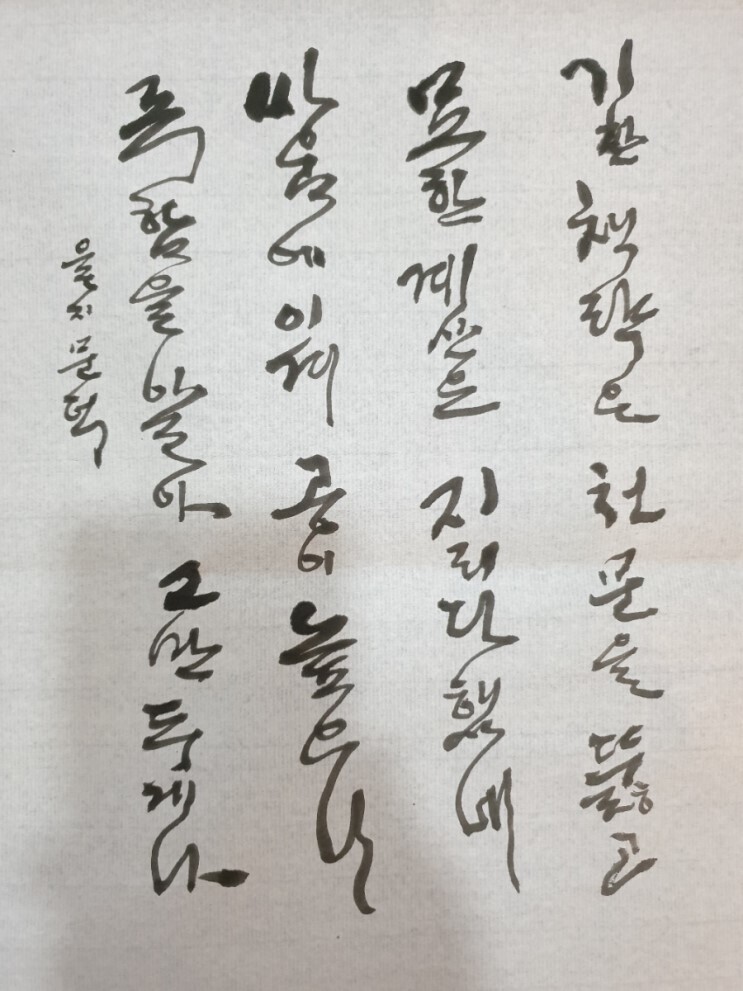 기찬 책략은 천문을 뚫고
묘한 계산은 지리 다 했네
싸움에 이겨 공이 높으니
족함을 알아 그만두게나
을지문덕